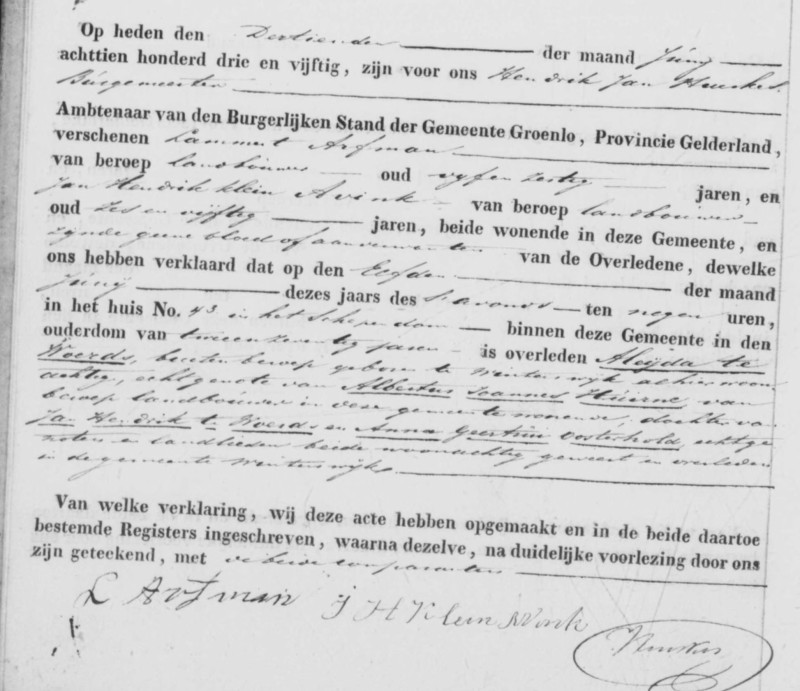 Op heden den Dertienden der maand Junij
achttien honderd drie en vijftig, zijn voor ons Hendrik Jan Huiskes
Burgemeester
Ambtenaar van den Burgerlijken Stand der Gemeente Groenlo, Provincie Gelderland,
verschenen Lammert Arfman
van beroep landbouwer oud vyf en zestig jaren, en
Jan Hendrik Klein Avink van beroep landbouwer
oud zes en vijftig jaren, beide wonende in deze Gemeente, en
zynde geene bloed of aanverwanten van de Overledene, dewelke
ons hebben verklaard dat op den Elfden der maand
Junij dezes jaars des s'avonds ten negen uren,
in het huis No. 43 in het Schependom binnen deze Gemeente in den
ouderdom van tweeenzeventig jaren is overleden Aleijda te
Woerds, buiten beroep geboren te Winterswyk alhier woon
achtig, echtgenote van Albertus Joannes Huirne van
beroep landbouwer in deze gemeente wonende, dochter van
Jan Hendrik te Woerds en Anna Geertrui Oosterhold, echtge
noten en landlieden beide woonachtig geweest en overleden
in de gemeente Winterswijk.
Van welke verklaring, wij deze acte hebben opgemaakt en in de beide daartoe
bestemde Registers ingeschreven, waarna dezelve, na duidelijke voorlezing door ons
zijn geteekend, met de beide comparanten
L Arfman J H Klein Avink
Huiskes